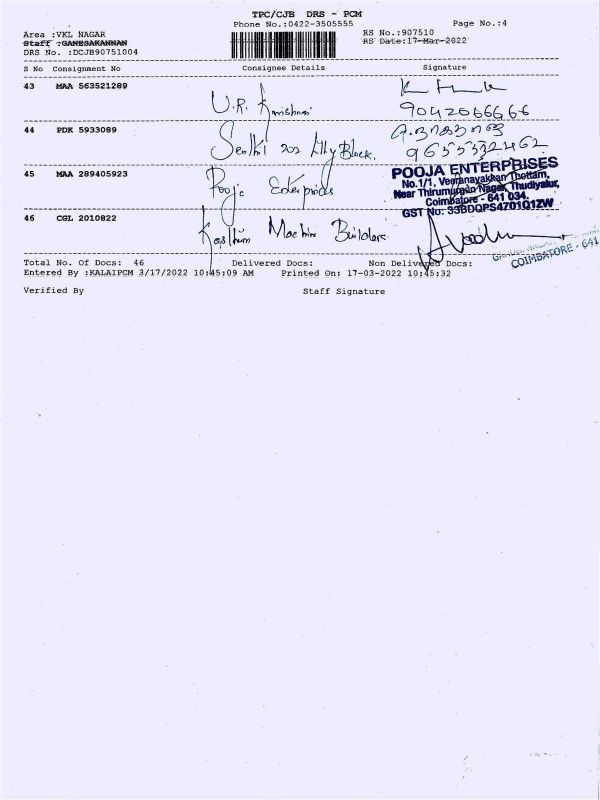 TPC/CJB DRS - PCM
Phone No.:0422-3505555 Page No.:4
Area :VKL NAGAR RS No.:907510
Staff :GANESAKANNAN RS Date:17-Mar-2022
DRS No. :DCJB90751004
S No Consignment No Consignee Details Signature
43 MAA 563521289 U.R.
9042066666
44 PDK 5933089 202 Block.
45 MAA 289405923 Pooja Enterprices
POOJA ENTERPRISES
No.1/1, Veeranayakkan Thottam,
Near Thirumurugan Nagar, Thudiyalur,
Coimbatore - 641 034.
GST No: 33BDQPS4701Q1ZW
46 CGL 2010822 Machine Builders
COIMBATORE - 641
Total No. Of Docs: 46 Delivered Docs: Non Delivered Docs:
Entered By :KALAIPCM 3/17/2022 10:45:09 AM Printed On: 17-03-2022 10:45:32
Verified By Staff Signature